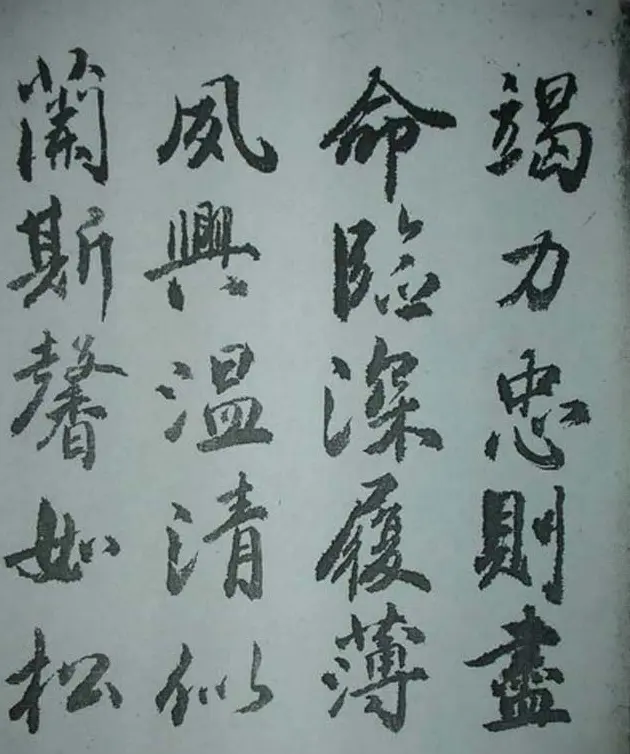 竭力忠則盡
命臨深履薄
夙興温清似
蘭斯馨如松